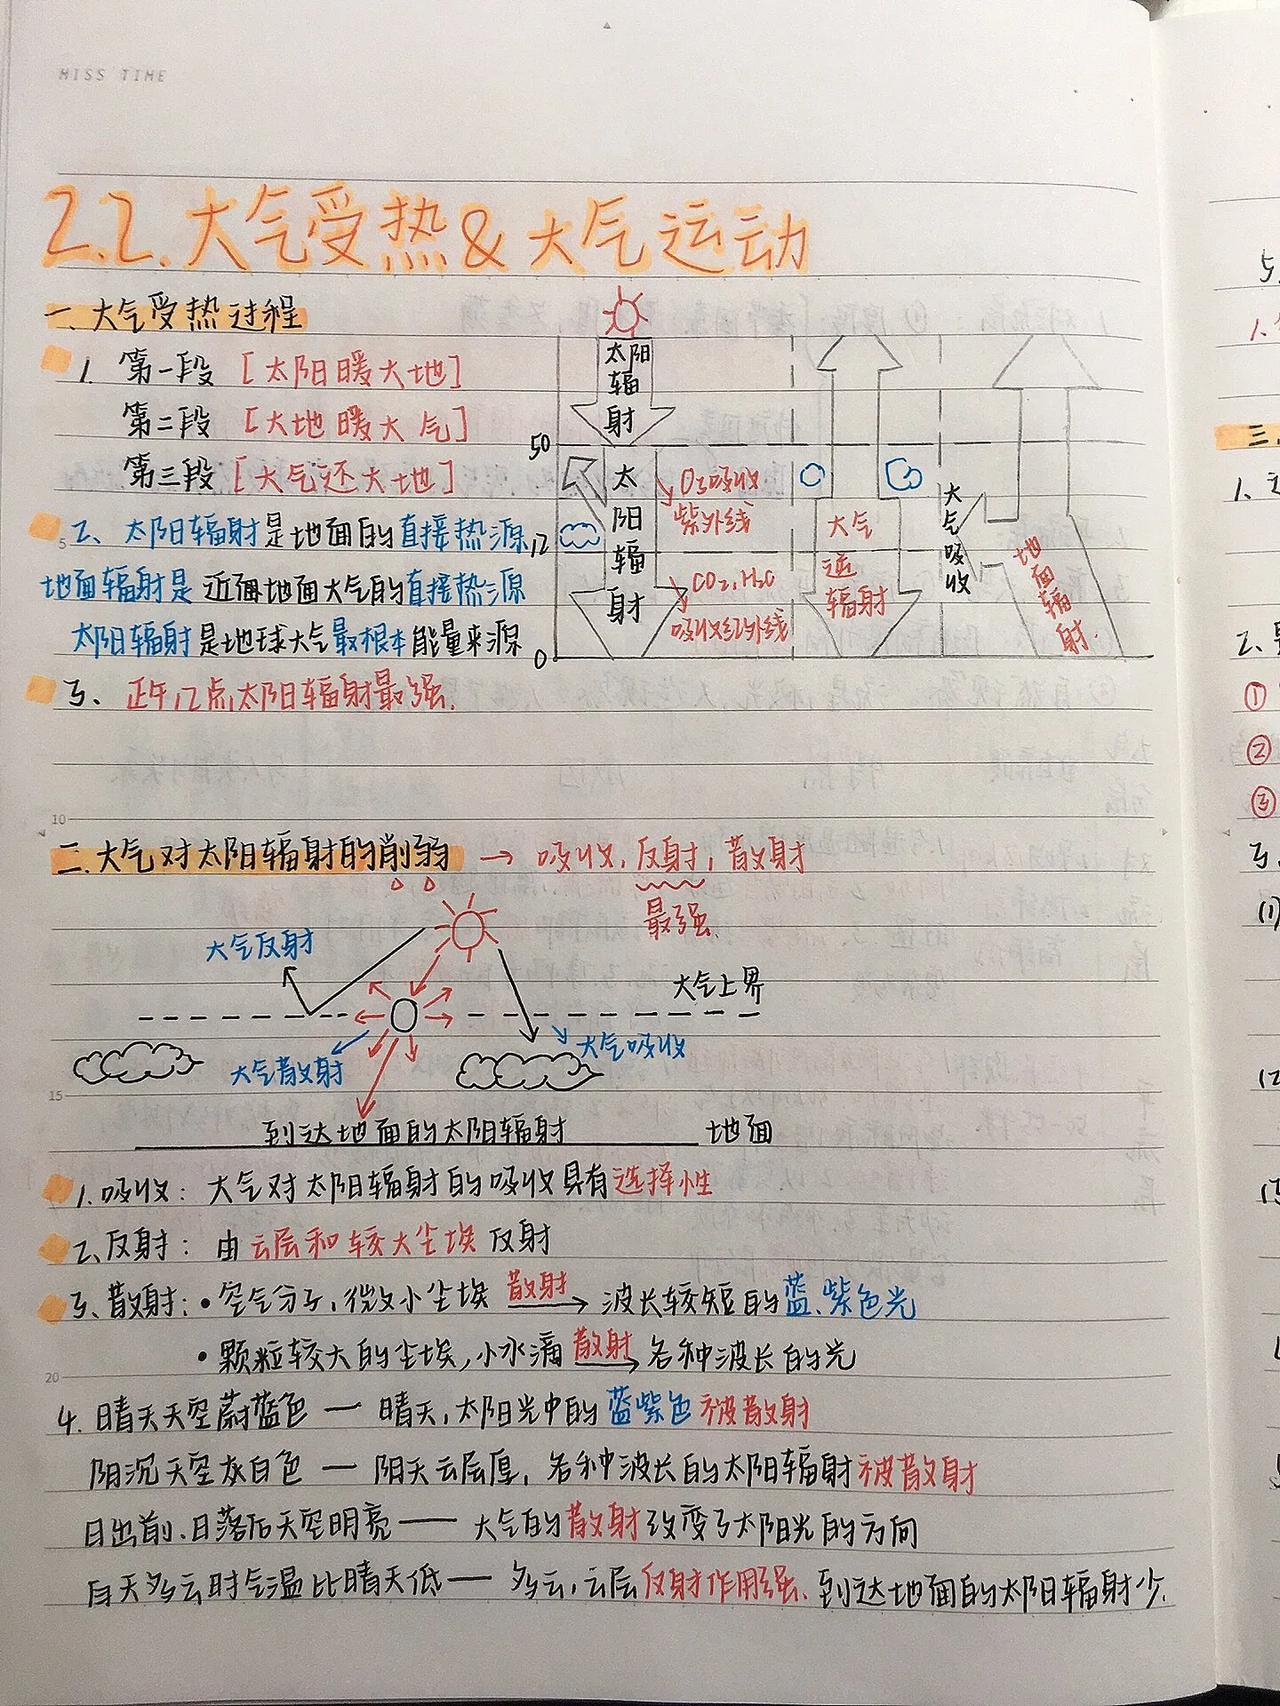 MISS TIME
2.2.大气受热&大气运动
一.大气受热过程
1. 第一段 [太阳暖大地]
第二段 [大地暖大气]
第三段 [大气还大地]
2、太阳辐射是地面的直接热源
地面辐射是近面地面大气的直接热源
太阳辐射是地球大气最根本能量来源
3、正午12点,太阳辐射最强.
太阳
辐
射
50
12
0
太
阳
辐
射
O3吸收
紫外线
CO2,H2O
吸收红外线
大气
逆
辐射
大气吸收
地面辐射.
5
10
二.大气对太阳辐射的削弱 → 吸收,反射,散射
最强.
大气反射
大气上界
大气散射
大气吸收
15
到达地面的太阳辐射 地面
1.吸收: 大气对太阳辐射的吸收具有选择性
2、反射: 由云层和较大尘埃反射
3、散射:•空气分子,微小尘埃 散射→ 波长较短的蓝、紫色光
•颗粒较大的尘埃,小水滴 散射→ 各种波长的光
20
4.晴天天空蔚蓝色 — 晴天,太阳光中的蓝紫色被散射
阴沉天空灰白色 — 阴天云层厚,各种波长的太阳辐射被散射
日出前、日落后天空明亮 — 大气的散射改变了太阳光的方向
白天多云时气温比晴天低 — 多云,云层反射作用强、到达地面的太阳辐射少.
5.
三.
1、
2、
①
②
③
3、
(1)